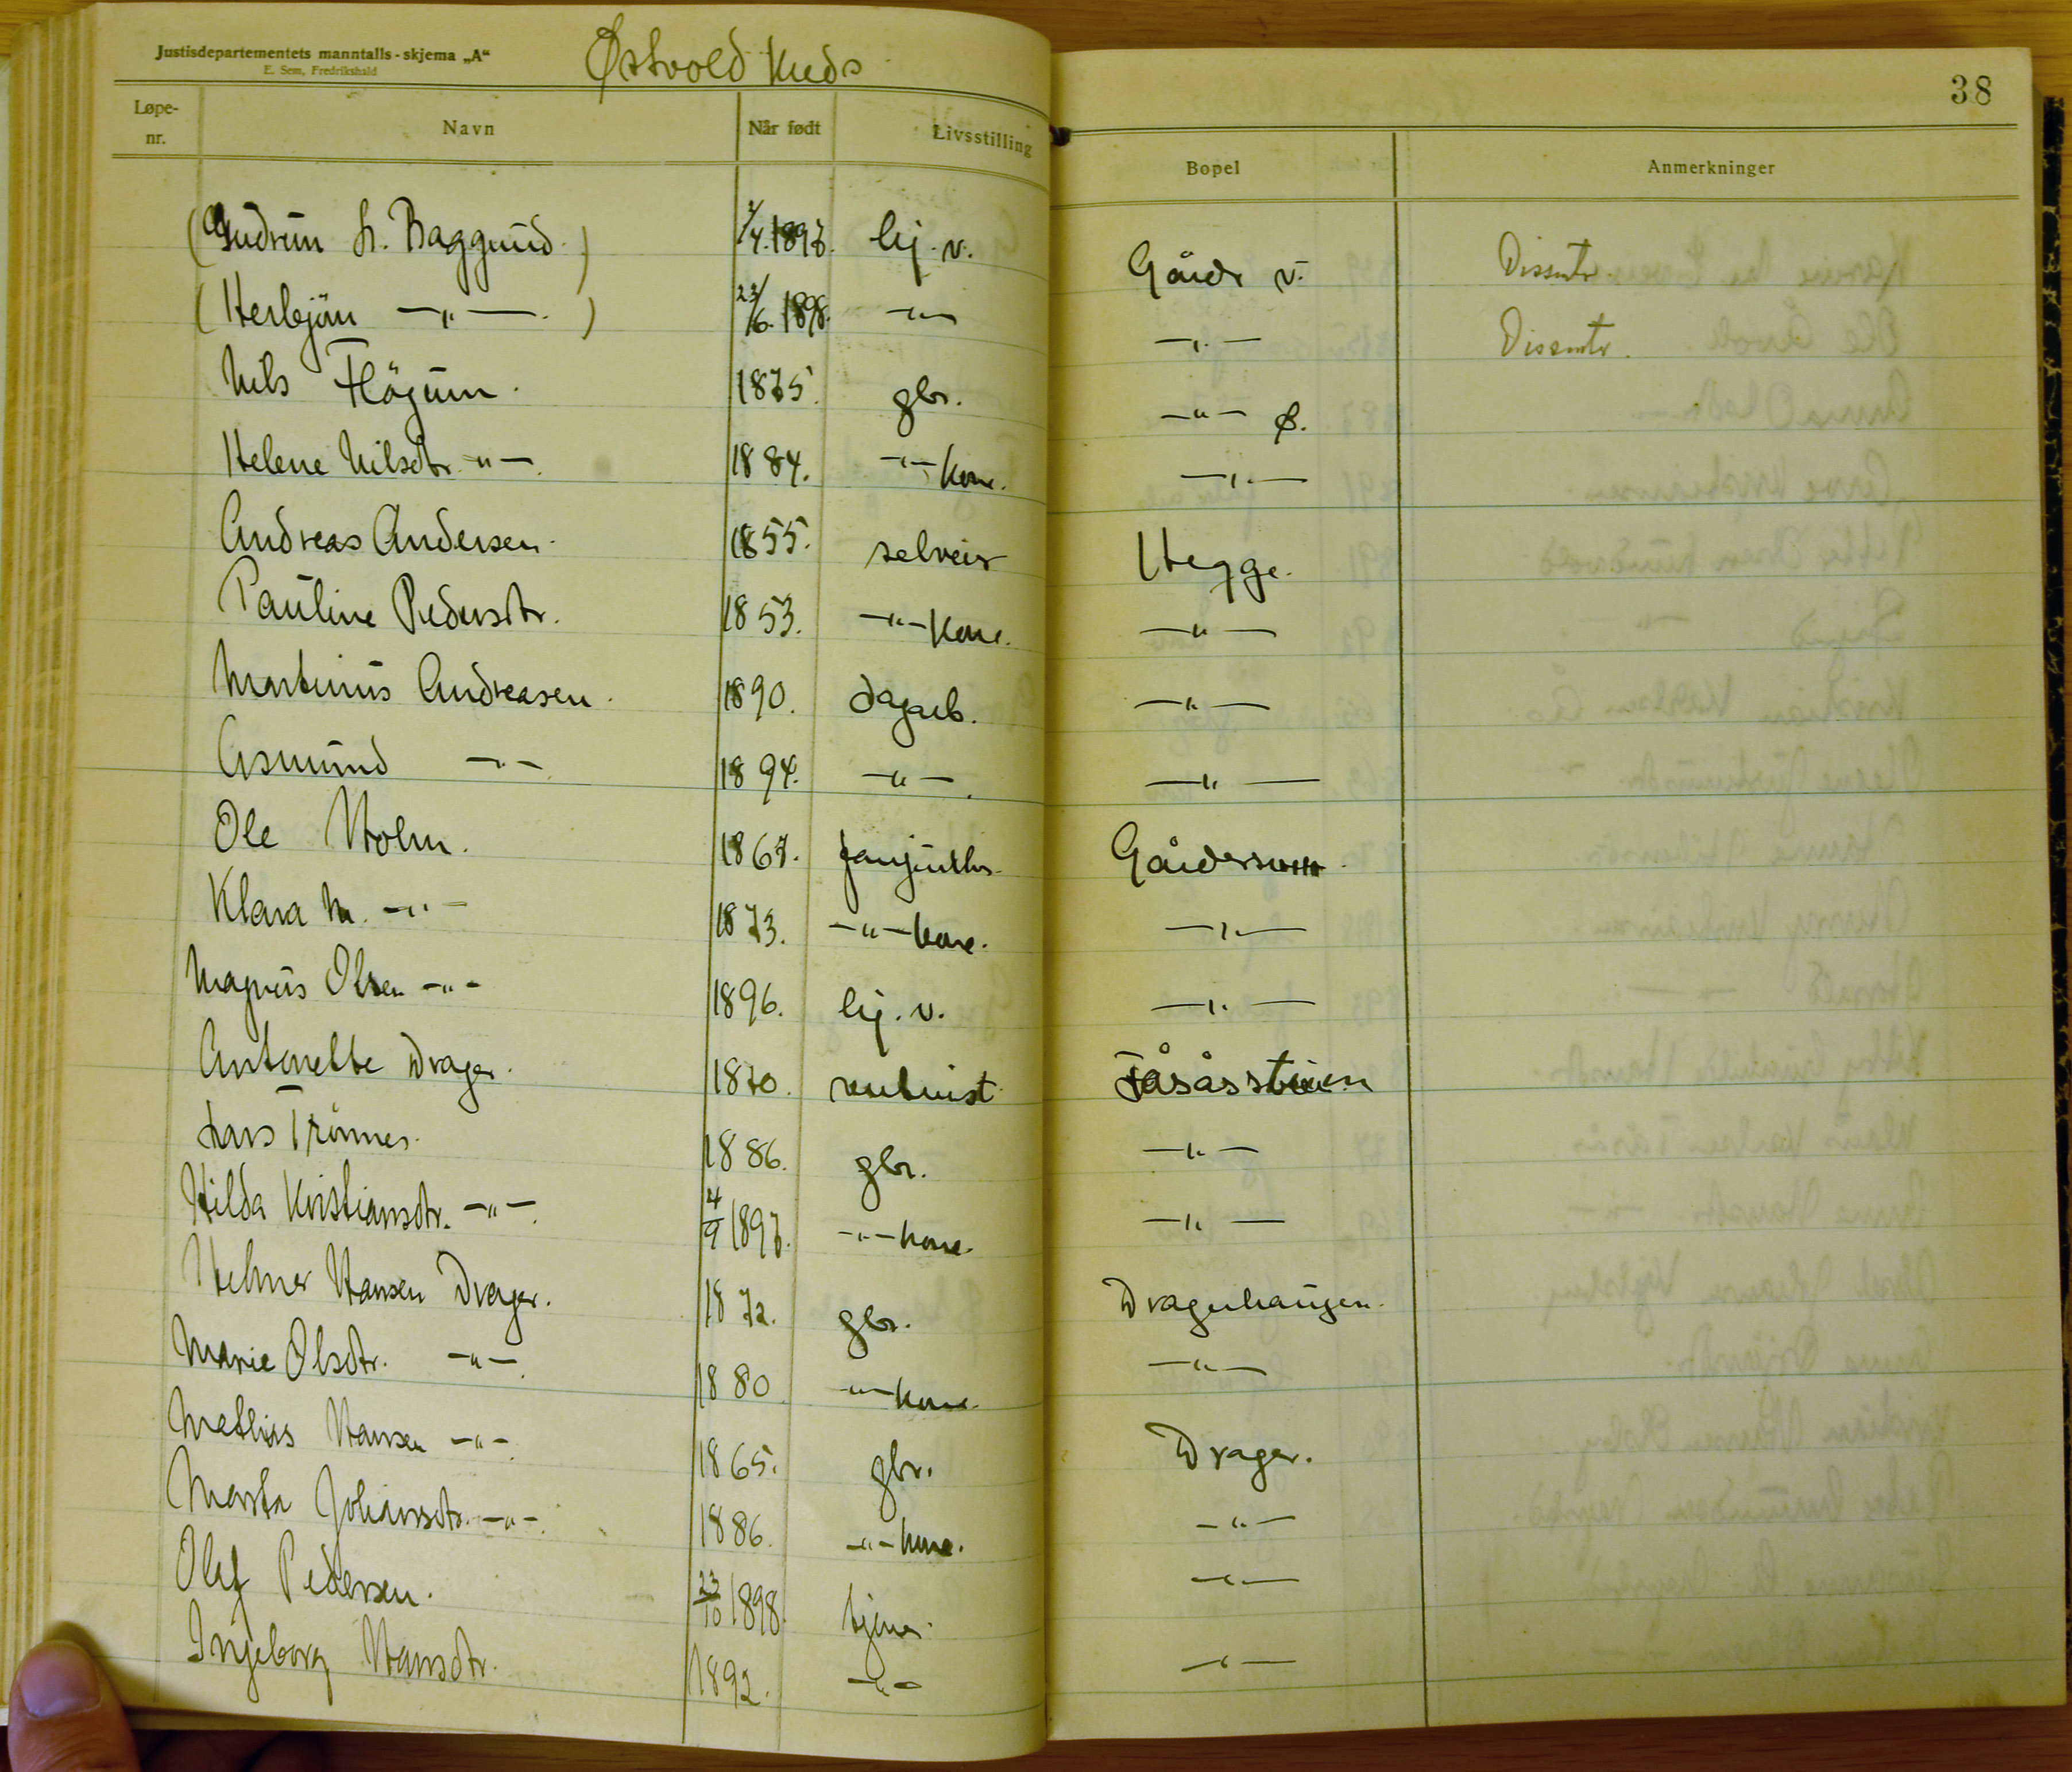 Justisdepartementets manntalls-skjema „A“
E. Sem, Fredrikshald
Østvold Kreds
38
Løpe-nr. Navn Når født Livsstilling Bopel Anmerkninger
(Gudrun L. Baggerud) 1/4. 1897. hj. v. Gårdr v. Dissentr.
(Herbjörn —„—.) 23/6. 1898. —„— —„— Dissentr.
Nils Flögum. 1875. gbr. —„— Ø.
Helene Nilsdtr. —„—. 1884. —„— kone. —„—
Andreas Andersen. 1855. selveier Hegge.
Pauline Pedersdtr. 1853. —„— kone. —„—
Martinus Andreasen. 1890. dagarb. —„—
Asmund —„—. 1894. —„—. —„—
Ole Holm. 1867.
Klara M. —„— 1873. —„— kone. —„—
Magnus Olsen —„— 1896. hj. v. —„—
Antonette Drager. 1870. rentenist
Lars Trönnes. 1886. gbr. —„—
Hilda Kristiansdtr. —„—. 4/9 1897. —„— kone. —„—
Helmer Hansen Drager. 1872. gbr. Dragerhaugen.
Marie Olsdtr. —„—. 1880 —„— kone. —„—
Mathias Hansen —„—. 1865. gbr. Drager.
Marta Johansdtr. —„—. 1886. —„— kone. —„—
Olaf Pedersen. 23/10 1898. tjener. —„—
Ingeborg Hansdtr. 1892. —„— —„—